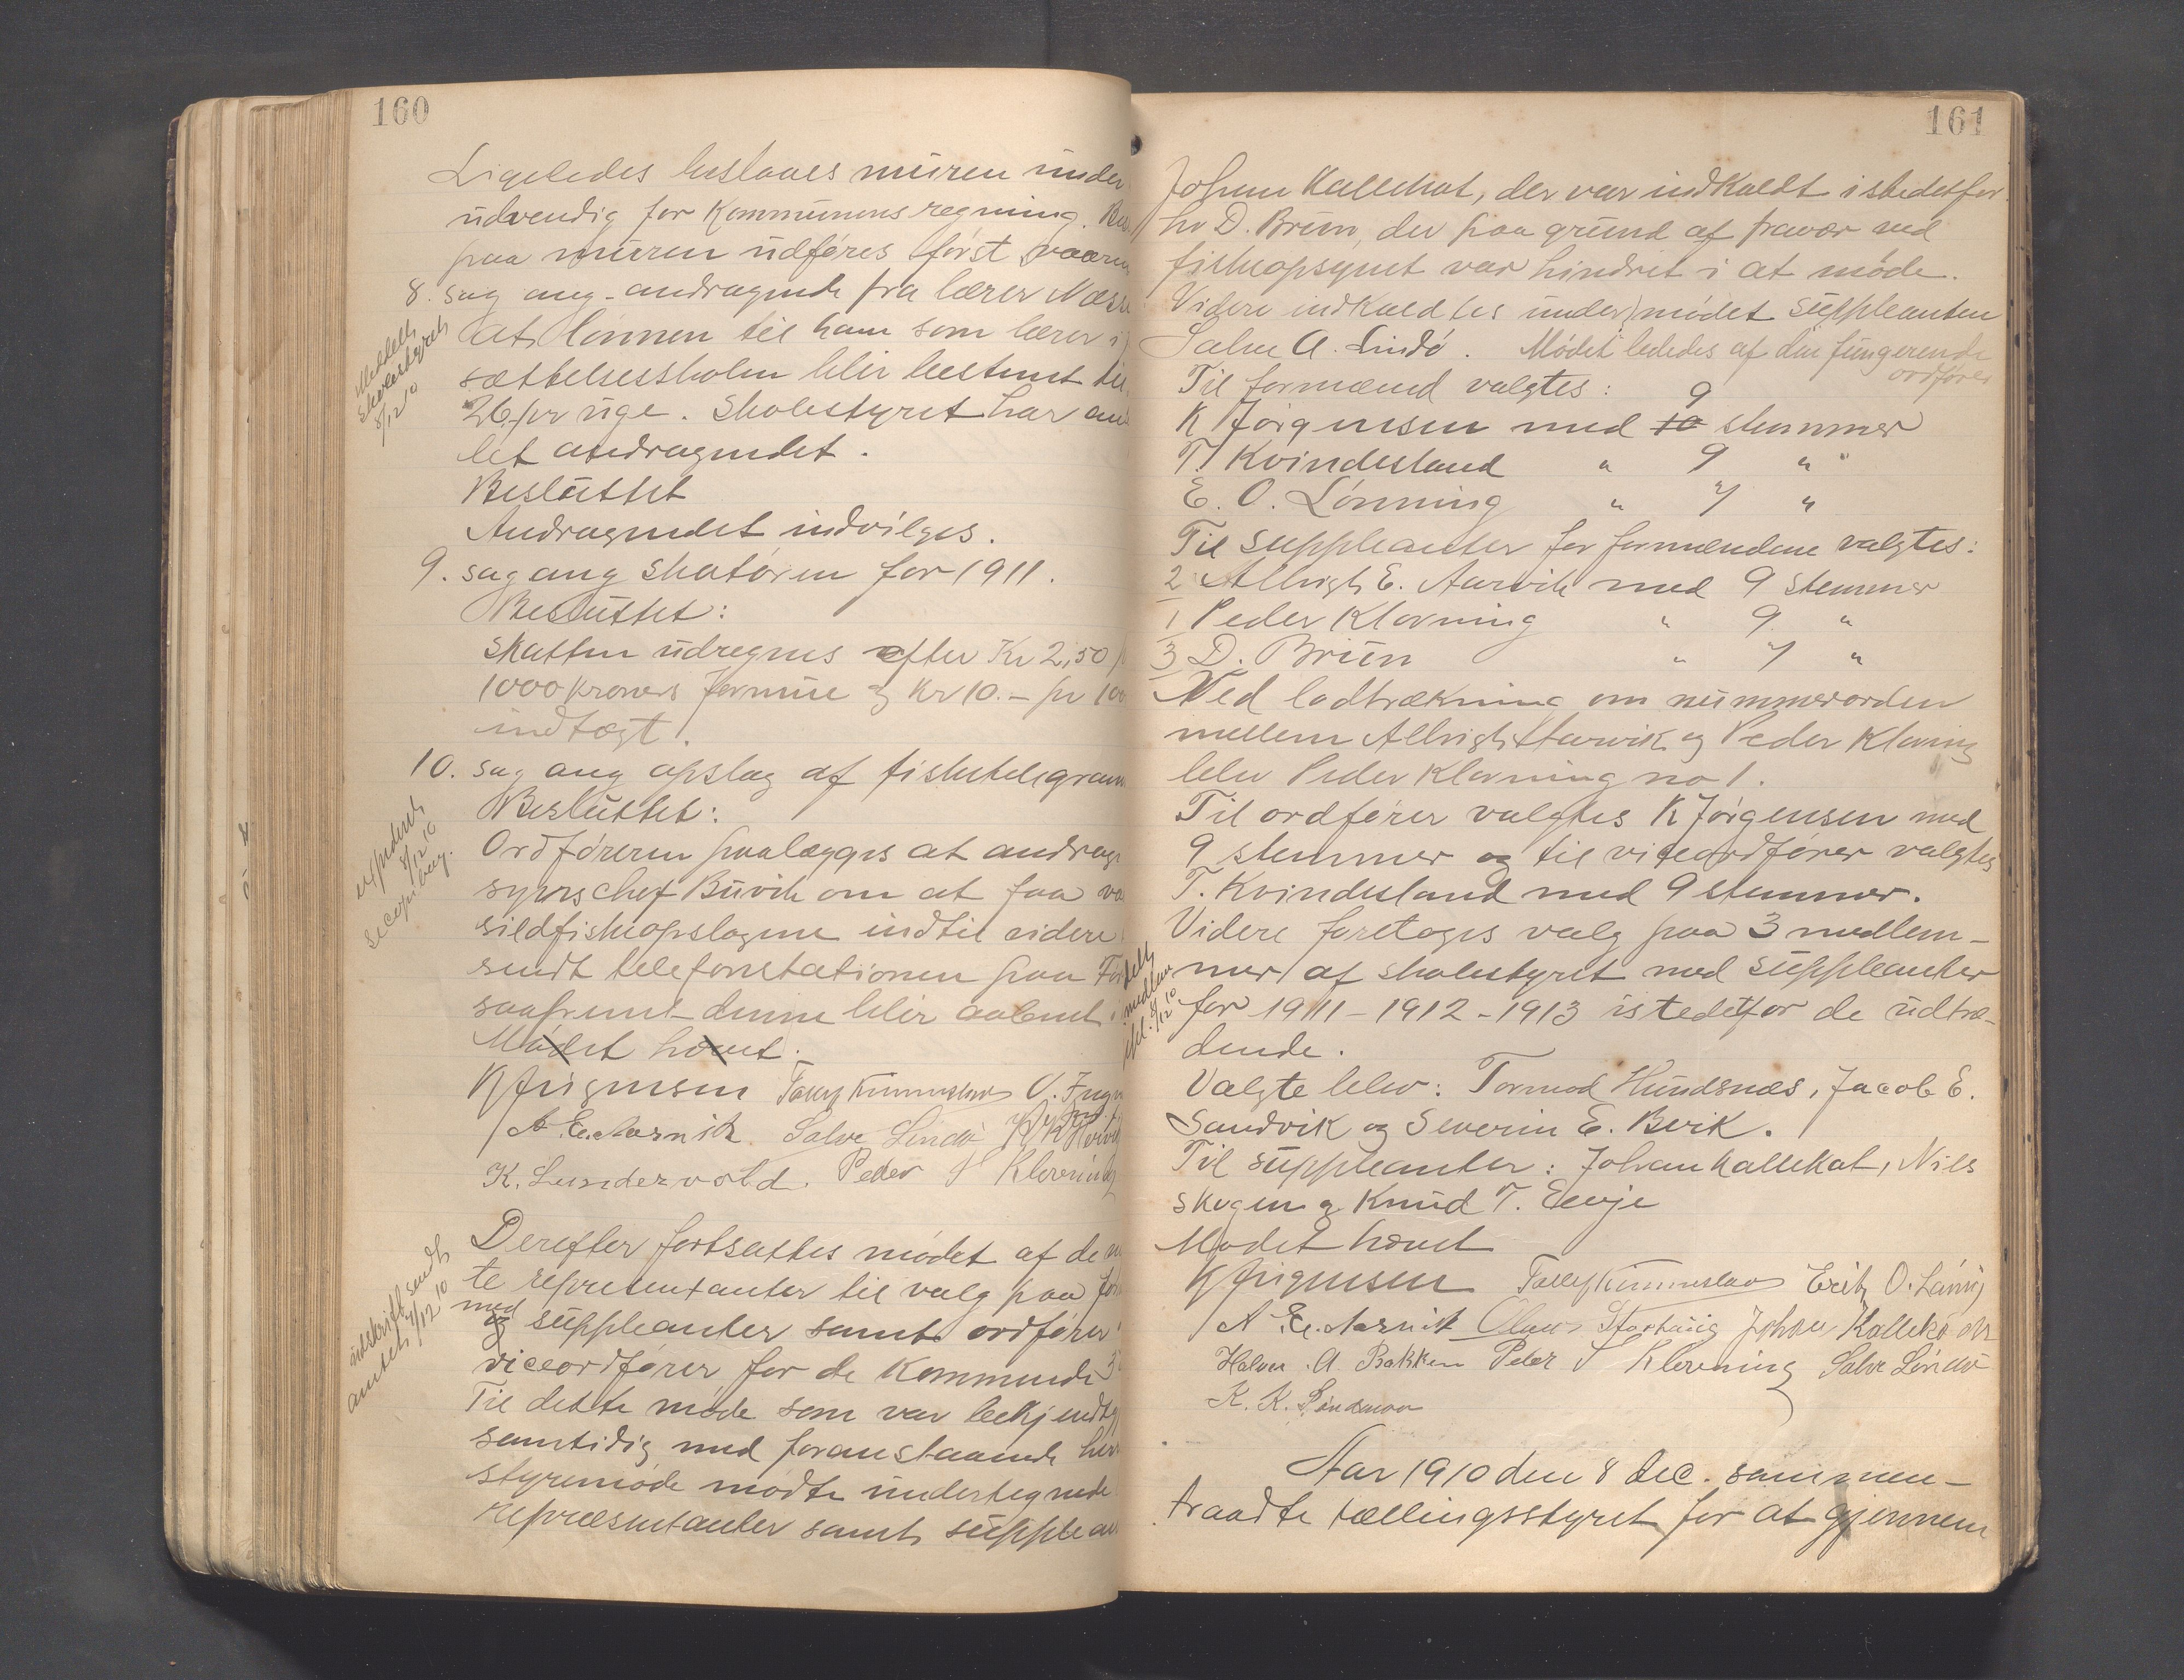 160
Ligeledes beslaaes muren under
udvendig for Kommunens regning.
paa muren udføres først vaaren
8. sag ang. andragende fra lærer
at lønnen til ham som lærer i
sættelsesskolen blir bestemt til
26 pr uge. Skolestyret har an
let andragendet.
Besluttet
Andragendet indvilges.
9. sag ang skatøren for 1911.
Besluttet:
Skatten udregnes efter Kr 2,50 p
1000 kroners formue og Kr 10.- pr 100
indtægt.
10. sag ang opslag af fisketelegram
Besluttet:
Ordføreren paalægges at andrage
synschef Buvik om at faa
sildfiskeopslagene indtil videre
sendt telefonstationen paa
saafremt denne blir aabnet i
Mødet hævet.
K Jørgensen
A. E. Aarvik Salve Lindø
K. Lundervold. Peder S Klovning
Derefter fortsattes mødet af de
te representanter til valg paa
med
og suppleanter samt ordfører
viceordfører for de kommende 3
Til dette møde som var bekjendt
samtidig med foranstaaende her
styremøde mødte undertegnede
repræsentanter samt supplean
Meddelt
Skolestyret
8/12 10
Expederet
8/12 10
se copibog.
udskrift sendt
amtet 9/12 10
161
Johan Kallekot, der var indkaldt istedetfor
hr D. Brun, der paa grund af fravær ved
fiskeopsynet var hindret i at møde.
Videre indkaldtes under mødet suppleanten
Salve A. Lindø. Mødet lededes af den fungerende
ordfører
Til formænd valgtes:
9
K Jørgensen med 10 stemmer
T. Kvindesland " 9 "
E. O. Lønning " 7 "
Til suppleanter for formændene valgtes:
2 Albrigt E. Aarvik med 9 stemmer
1 Peder Klovning " 9 "
3 D. Brun " 7 "
Ved lodtrækning om nummerorden
mellem Albrigt Aarvik og Peder Klovning
blev Peder Klovning no 1.
Til ordfører valgtes K Jørgensen med
9 stemmer og til viceordfører valgtes
T. Kvindesland med 9 stemmer.
Videre foretoges valg paa 3 medlem-
mer af skolestyret med suppleanter
for 1911-1912-1913 istedetfor de udtræ-
dende.
Valgte blev: Tormod Hundsnæs, Jacob E.
Sandvik og Severin E. Bevik.
Til suppleanter: Johan Kallekot, Nils
Skogen og Knud T. Eevje
Mødet hævet
K Jørgensen Erik O. Lønnig
A. E. Aarvik Olaus Storhaug Johan Kallekodt
Halvor A. Bakken Peder S Klovning Salve Lindø
8/12 10
Aar 1910 den 8 dec. sammen-
traadte tællingsstyret for at gjennem